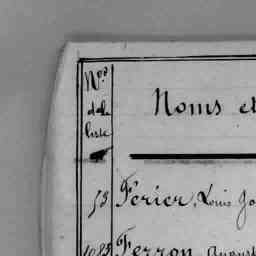 Nos
de la
liste
Noms et
53 Férier, Louis Jo
Ferron, August